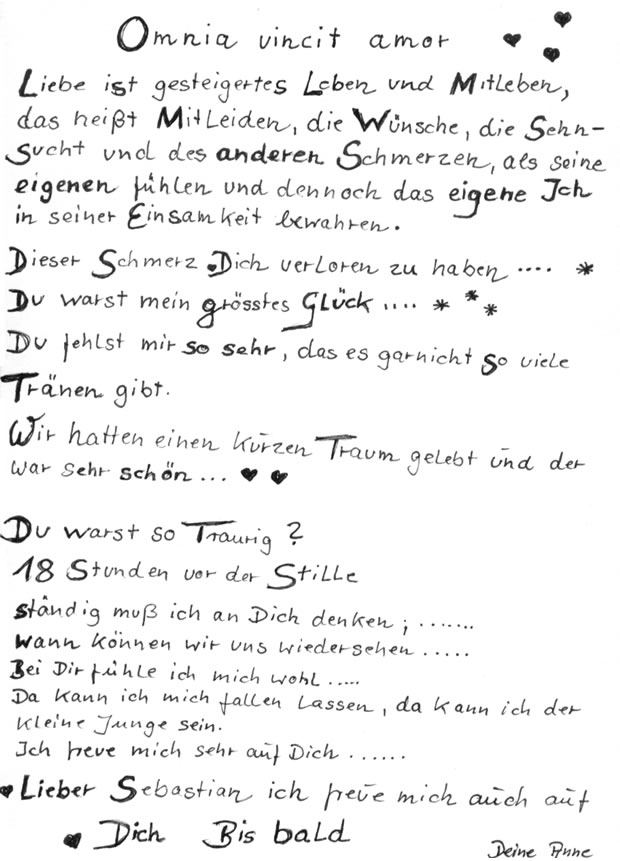 Omnia vincit amor
Liebe ist gesteigertes Leben und Mitleben,
das heißt Mitleiden, die Wünsche, die Sehn-
sucht und des anderen Schmerzen, als seine
eigenen fühlen und dennoch das eigene Ich
in seiner Einsamkeit bewahren.
Dieser Schmerz Dich verloren zu haben .... *
Du warst mein grösstes Glück .... * * *
Du fehlst mir so sehr, das es garnicht so viele
Tränen gibt.
Wir hatten einen kurzen Traum gelebt und der
war sehr schön...
Du warst so Traurig ?
18 Stunden vor der Stille
ständig muß ich an Dich denken; .......
wann können wir uns wiedersehen .....
Bei Dir fühle ich mich wohl .....
Da kann ich mich fallen lassen, da kann ich der
kleine Junge sein.
Ich freue mich sehr auf Dich ......
Lieber Sebastian ich freue mich auch auf
Dich Bis bald
Deine Anne